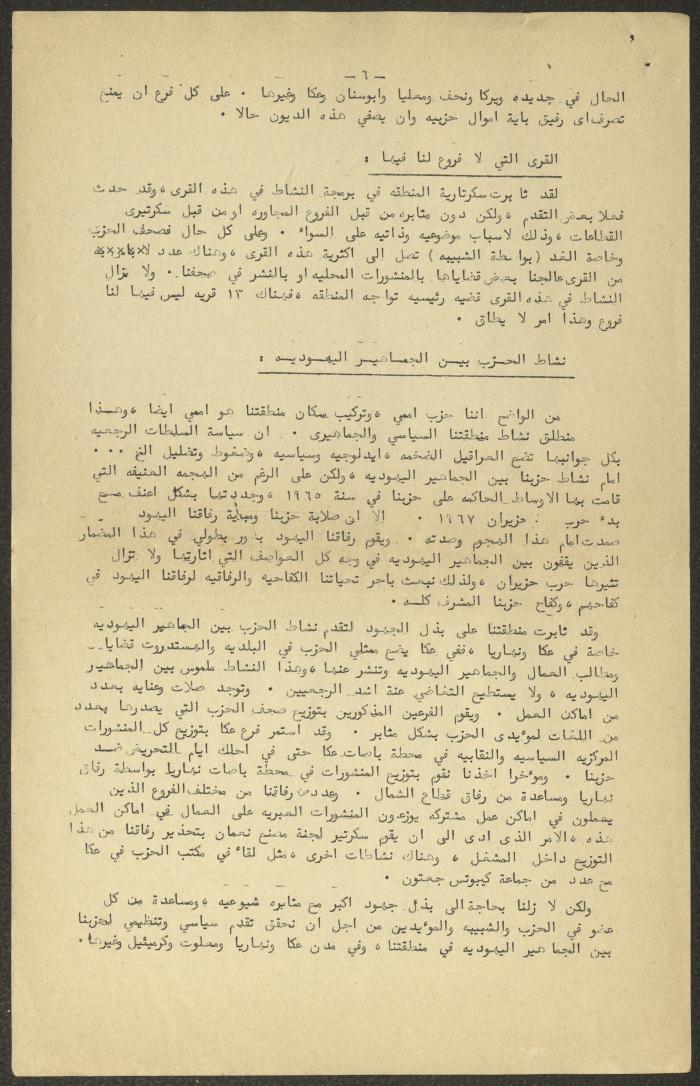 — ٦ —
الحال في جديده ويركا ونحف ومعليا وابوسنان وعكا وغيرها ٠ على كل فرع ان يمنع
تصرف اى رفيق باية اموال حزبيه وان يصفي هذه الديون حالا ٠
القرى التي لا فروع لنا فيها :
لقد ثابرت سكرتارية المنطقه في برمجة النشاط في هذه القرى ، وقد حدث
فعلا بعض التقدم ، ولكن دون مثابره من قبل الفروع المجاوره او من قبل سكرتيرى
القطاعات ، وذلك لاسباب موضوعيه وذاتيه على السواء ٠ وعلى كل حال فصحف الحزب
وخاصة الغد ( بواسطة الشبيبه ) تصل الى اكثرية هذه القرى ، وهناك عدد
من القرى عالجنا بعض قضاياها بالمنشورات المحليه او بالنشر في صحفنا ٠ ولا يزال
النشاط في هذه القرى قضيه رئيسيه تواجه المنطقه ، فهناك ١٣ قريه ليس فيها لنا
فروع وهذا امر لا يطاق ٠
نشاط الحزب بين الجماهير اليهوديه :
من الواضح اننا حزب اممي ، وتركيب سكان منطقتنا هو اممي ايضا ، وهذا
منطلق نشاط منطقتنا السياسي والجماهيرى ٠ ان سياسة السلطات الرجعيه
بكل جوانبها تضع العراقيل الضخمه ، ايدلوجيه وسياسيه ، وضغوط وتضليل الخ ٠٠٠
امام نشاط حزبنا بين الجماهير اليهوديه ، ولكن على الرغم من الهجمه العنيفه التي
قامت بها الاوساط الحاكمه على حزبنا في سنة ١٩٦٥ ، وجددتها بشكل اعنف مع
بدء حرب حزيران ١٩٦٧ ٠ الا ان صلابة حزبنا ومبدئية رفاقنا اليهود
صمدت امام هذا الهجوم وصدته ٠ ويقوم رفاقنا اليهود بدور بطولي في هذا المضمار
الذين يقفون بين الجماهير اليهوديه في وجه كل العواصف التي اثارتها ولا تزال
تثيرها حرب حزيران ، ولذلك نبعث باحر تحياتنا الكفاحيه والرفاقيه لرفاقنا اليهود في
كفاحهم ، وكفاح حزبنا المشرف كله ٠
وقد ثابرت منطقتنا على بذل الجهود لتقدم نشاط الحزب بين الجماهير اليهوديه
خاصة في عكا ونهاريا ، ففي عكا يضع ممثلي الحزب في البلديه والهستدروت قضايا
ومطالب العمال والجماهير اليهوديه وتنشر عنها ، وهذا النشاط ملموس بين الجماهير
اليهوديه ، ولا يستطيع التغاضي عنة اشد الرجعيين ٠ وتوجد صلات وعنايه بعدد
من اماكن العمل ٠ ويقوم الفرعين المذكورين بتوزيع صحف الحزب التي يصدرها بعدد
من اللغات لموءيدى الحزب بشكل مثابر ٠ وقد استمر فرع عكا بتوزيع كل المنشورات
المركزيه السياسيه والنقابيه في محطة باصات عكا حتى في احلك ايام التحريض ضد
حزبنا ٠ وموءخرا اخذنا نقوم بتوزيع المنشورات في محطة باصات نهاريا بواسطة رفاق
نهاريا ومساعدة من رفاق قطاع الشمال ٠ وعدد من رفاقنا من مختلف الفروع الذين
يعملون في اماكن عمل مشتركه يوزعون المنشورات العبريه على العمال في اماكن العمل
هذه ، الامر الذى ادى الى ان يقوم سكرتير لجنة مصنع نعمان بتحذير رفاقنا من هذا
التوزيع داخل المشغل ، وهناك نشاطات اخرى ، مثل لقاء في مكتب الحزب في عكا
مع عدد من جماعة كيبوتس جعتون ٠
ولكن لا زلنا بحاجة الى بذل جهود اكبر مع مثابره شيوعيه ، ومساعدة من كل
عضو في الحزب والشبيبه والموءيدين من اجل ان نحقق تقدم سياسي وتنظيمي لحزبنا
بين الجماهير اليهوديه في منطقتنا ، وفي مدن عكا ونهاريا ومعلوت وكرميئيل وغيرها ٠